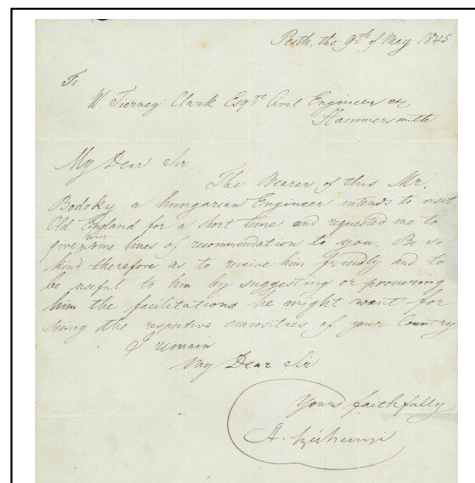 Pesth, the 9th of May 1845
To
W. Tierney Clark Esqre Civil Engineer
Hammersmith
My Dear Sir.
The Bearer of this Mr.
Bodoky a hungarian Engineer intends to visit
Old England for a short time and requested me to
give him some lines of recommendation to you. Be so
kind therefore as to receive him friendly and to
be useful to him by suggesting or procuring
him the facilitations he might want for
the respective curiosities of your Country
I remain
My Dear Sir
Yours faithfully